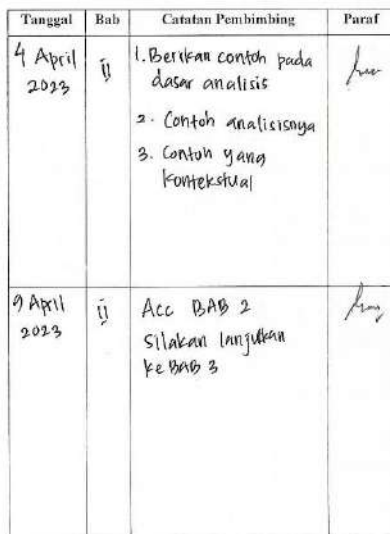 Tanggal Bab Catatan Pembimbing Paraf
4 April II 1. Berikan contoh pada
2023 dasar analisis
2. Contoh analisisnya
3. Contoh yang
kontekstual
9 April II Acc BAB 2
2023 Silakan lanjutkan
ke BAB 3